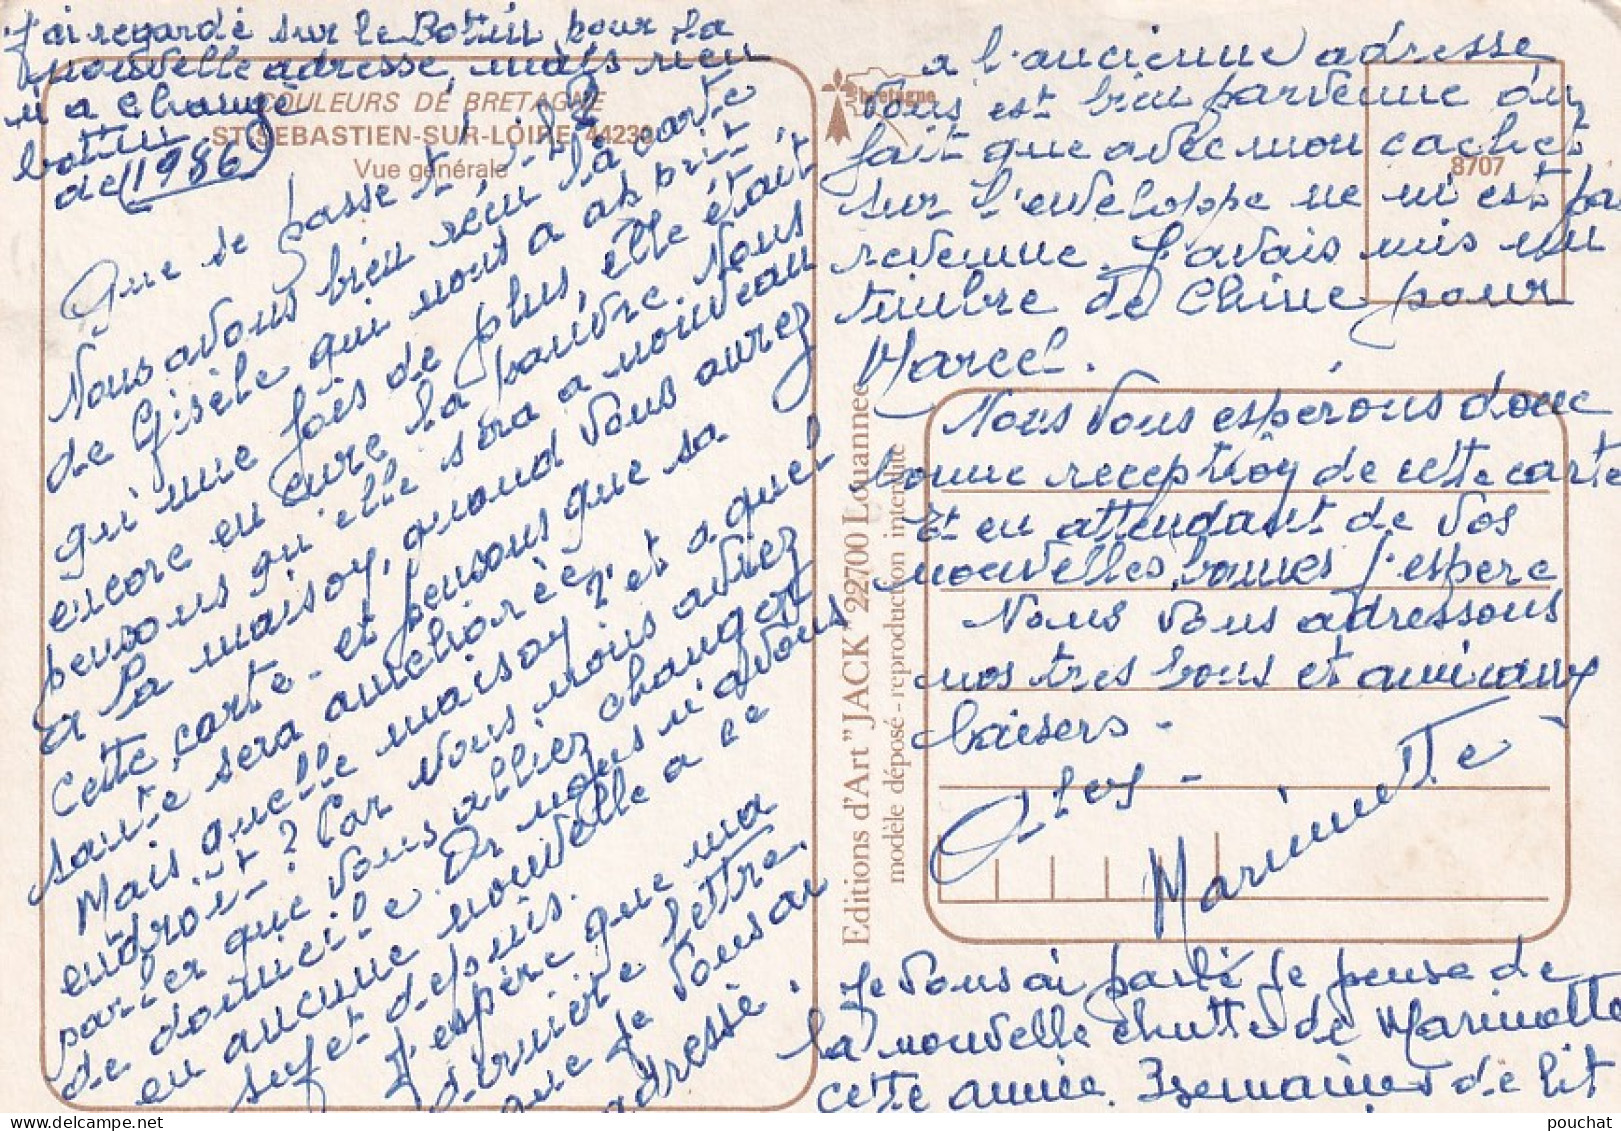 J'ai regardé sur le Botin pour la
nouvelle adresse, mais rien
n'a changé
botin
de (1986)
COULEURS DE BRETAGNE
ST SEBASTIEN-SUR-LOIRE 44230
Vue générale
Que se passe t'il ?
Nous avons bien reçu la carte
de Gisèle qui nous a appris
qu'une fois de plus, elle était
encore en cure la pauvre. Nous
pensons qu'elle sera a nouveau
a la maison, quand vous aurez
cette carte - et pensons que sa
santé sera améliorée
Mais quelle maison ? et a quel
endroit ? Car vous nous aviez
parler que vous alliez changer
de domicile. Or nous n'avons
eu aucune nouvelle a ce
sujet depuis.
J'espère que ma
dernière lettre
que je vous ai
adressé.
a l'ancienne adresse
vous est bien parvenue du
fait que avec mon cachet
sur l'enveloppe ne m'est pa
revenue. J'avais mis un
timbre de Chine pour
Marcel.
bretagne
8707
Nous vous espérons donc
bonne reception de cette carte
Et en attendant de vos
nouvelles, bonnes j'espere
Nous vous adressons
nos tres bons et amicaux
baisers -
Marinette
Editions d'Art "JACK" 22700 Louannec
modèle déposé - reproduction interdite
Je vous ai parlé je pense de
la nouvelle chutte de Marinette
cette année. 3 semaines de lit
pouchat